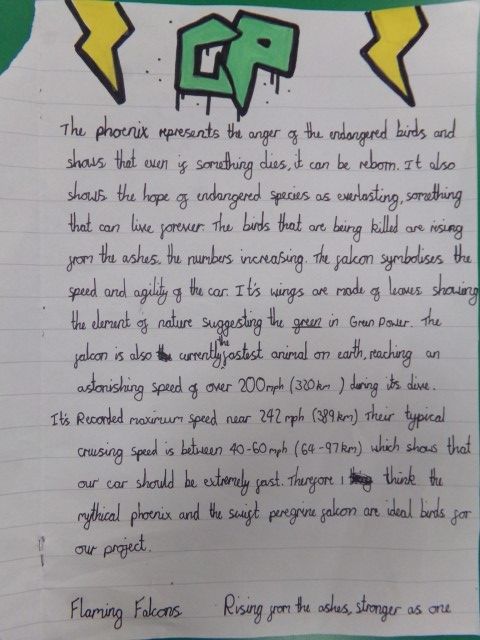 GP
The phoenix represents the anger of the endangered birds and
shows that even if something dies, it can be reborn. It also
shows the hope of endangered species as everlasting, something
that can live forever. The birds that are being killed are rising
from the ashes, the numbers increasing. The falcon symbolises the
speed and agility of the car. It's wings are made of leaves showing
the element of nature suggesting the green in Green Power. The
falcon is also currently the fastest animal on earth, reaching an
astonishing speed of over 200mph (320km ) during its dive.
It's Recorded maximum speed near 242 mph (389km) Their typical
cruising speed is between 40-60mph (64-97km) which shows that
our car should be extremely fast. Therefore I think the
mythical phoenix and the swift peregrine falcon are ideal birds for
our project.
Flaming Falcons Rising from the ashes, stronger as one